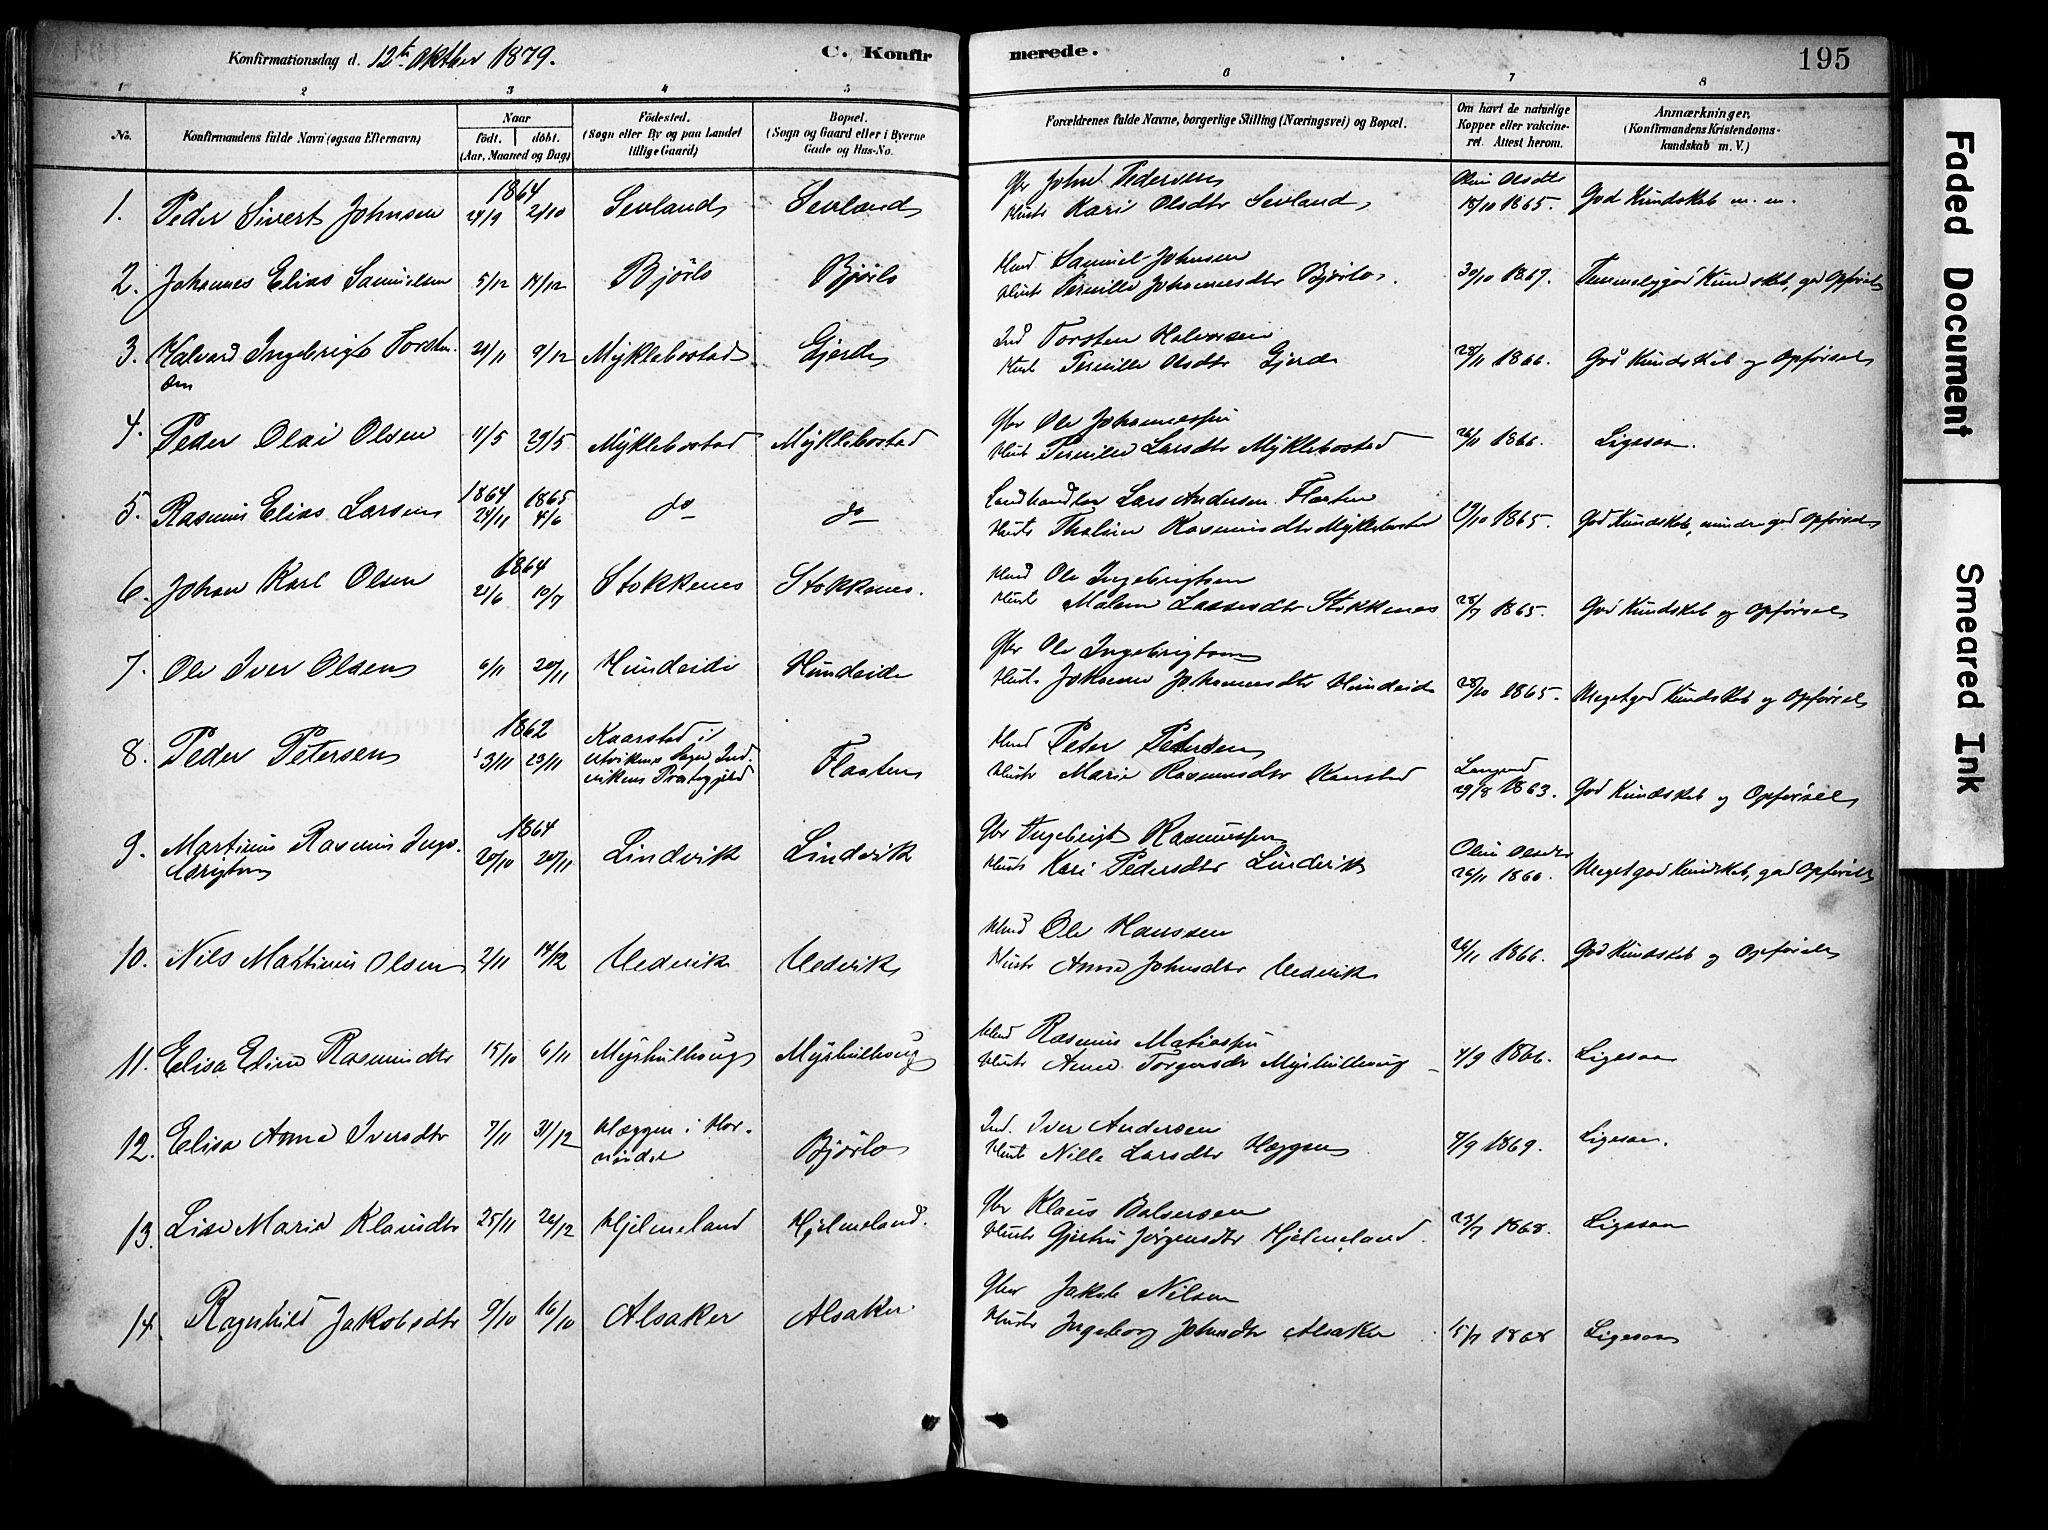 Konfirmationsdag d. 12te Oktber 1879. C. Konfirmerede. 195
1 2 3 4 5 6 7 8
No. Konfirmandens fulde Navn (ogsaa Efternavn) Naar født. døbt. (Aar, Maaned og Dag) Fødested. (Sogn eller By og paa Landet tillige Gaard) Bopæl. (Sogn og Gaard eller i Byerne Gade og Hus-No. Forældrenes fulde Navne, borgerlige Stilling (Næringsvei) og Bopæl. Om havt de naturlige Kopper eller vakcineret. Attest herom. Anmærkninger. (Konfirmandens Kristendomskundskab m. V.)
1864 Gbr John Pedersen
1. Peder Sivert Johnsen 24/9 2/10 Sevland Sevland Hust Kari Olsdtr Sevland 18/10 1865. God Kundskab m. m.
Hmd Samuel Johnsen
2. Johannes Elias Samuelsen 5/12 14/12 Bjørlo Bjørlo Hust Pernille Johannesdtr Bjørlo. 30/10 1867. Temmeliggod Kundskab, god Opførsel
Ind Torsten Halvorsen
3. Halvard Ingebrigt Torsten- 21/11 9/12 Myklebostad Gjerde Hust Pernille Olsdtr Gjerde 28/11 1866. God Kundskab og Opførsel
sen
Gbr Ole Johannessen
4. Peder Olai Olsen 4/5 29/5 Myklebostad Myklebostad Hust Pernille Larsdtr Myklebostad 26/11 1866. Ligesaa.
1864 1865 Landhandler Lars Andersen Flaten
5. Rasmus Elias Larsen 24/11 4/6 do do Hust Thaline Rasmusdtr Myklebostad 19/10 1865. God Kundskab, mindre god Opførsel
1864 Hmd Ole Ingebrigtsen
6. Johan Karl Olsen 21/6 10/7 Stokkenes Stokkenes. Hust Malene Lassesdtr Stokkenes 28/7 1865. God Kundskab og Opførsel
Gbr Ole Ingebrigtsen
7. Ole Iver Olsen 6/11 20/11 Hundeide Hundeide Hust Johanne Johannesdtr Hundeide 28/10 1865. Meget god Kundskab og Opførsel
1862 Kaarstad i Hmd Peter Petersen
8. Peder Petersen 3/11 23/11 Utvikens Sogn Ind- Flaaten Hust Marie Rasmusdtr Kaarstad 29/8 1863. God Kundskab og Opførsel
vikens Præstegjeld
1864 Gbr Ingebrigt Rasmussen
9. Martinus Rasmus Inge- 20/10 20/11 Lindvik Lindvik Hust Kari Pedersdtr Lindvik 26/11 1866. Meget god Kundskab, god Opførsel
brigtsen
Hmd Ole Hanssen
10. Nils Martinus Olsen 2/11 14/12 Hedvik Hedvik Hust Anna Johnsdtr Hedvik 26/11 1866. God Kundskab og Opførsel
Hmd Rasmus Matiassen
11. Elisa Eline Rasmusdtr 15/10 6/11 Myshulhaug Myshulhaug Hust Anne Torgersdr Myshulhaug 4/9 1866. Ligesaa
Ind. Iver Andersen
12. Elisa Anna Iversdtr 7/11 31/12 Hæggen i Hor- Bjørlo Hust Nille Larsdtr Heggen 7/9 1869. Ligesaa.
nindal
Gbr Klaus Balsersen
13. Lise Marie Klausdtr 25/11 26/12 Hjelmeland Hjelmeland. Hust Gjertru Jørgensdtr Hjelmeland. 23/7 1868. Ligesaa
Gbr Jakob Nilsen
14. Ragnhild Jakobsdtr 9/10 16/10 Alsaker Alsaker Hust Ingeborg Johnsdtr Alsaker 15/7 1868 Ligesaa
Faded Document
Smeared Ink